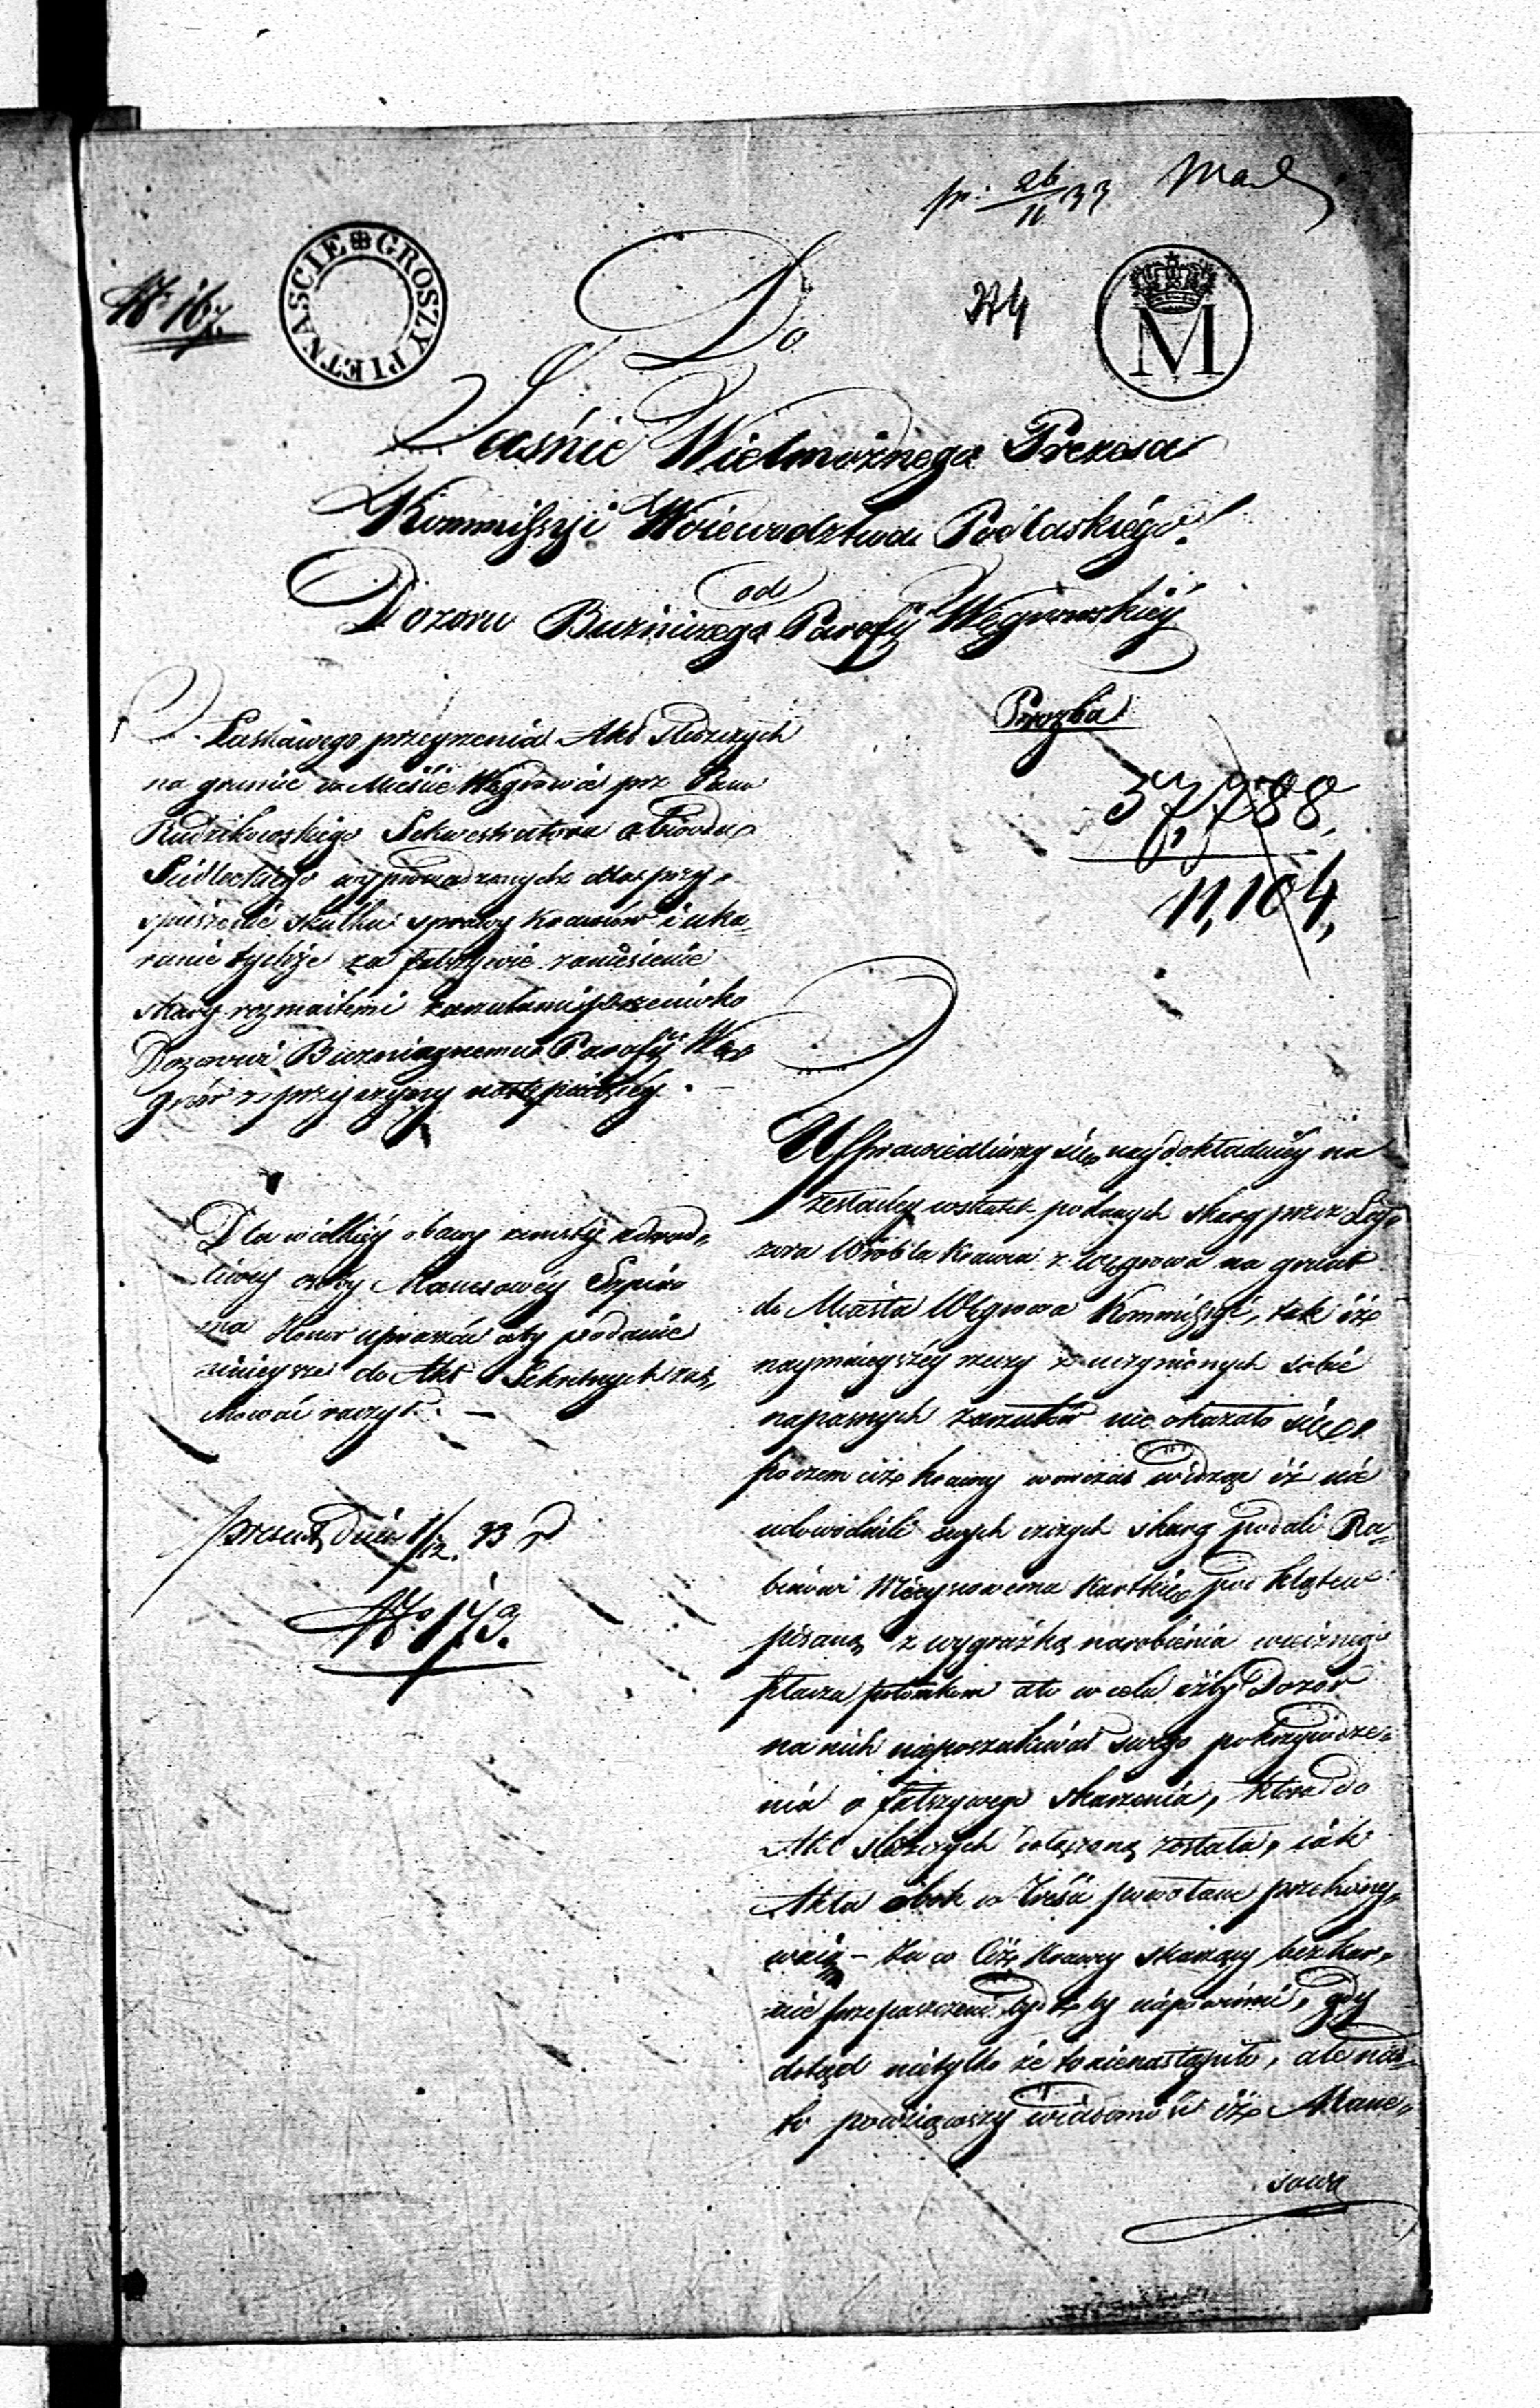 pr. 26/11 33
No 167.
GROSZY PIETNASCIE
M
Do
Jaśnie Wielmożnego Prezesa
Kommissyi Woiewodztwa Podlaskiego!
od
Dozoru Bużniczego Parafij Węgrowskiey
Prozba
57,788,
11,104,
Łaskawego przeyrzenia Akt Sledczych
na gruncie w Mieście Węgrowie prz Pana
Rudzikowskiego Sekwestratora Obwodu
Siedleckiego wyprowadzonych dla przy-
spieszenie skutku sprawy Krawców i uka-
ranie tychże za fałszywie zaniesienie
skarg rozmaitemi zarzutami przeciwko
Dozorowi Bużnicznemu Parafij Wę-
grów z przyczyny następuiącey. —
Dla wielkiey obawy zemsty
osoby Manesowey Szpiro
ma Honor upraszać aby podanie
ninieysze do Akt Sekretnych zac-
chować raczył. —
present dnia 1/12. 33 r
No 173.
Usprawiedliwszy się naydokładniey na
zesłaney wskutek podanych skarg przez Ley-
zora Wróbla Krawca z Węgrowa na grunt
do Miasta Węgrowa Kommissyi, tak iż
naymnieyszey rzeczy z uczynionych sobie
napasnych zarzutów nie okazało się
poczem ciż krawcy wówczas widząc iż nie
udowodnili swych skarg podali Ra-
binowi Mieyscowemu kartkę pod klątwe
pisaną z wygraźką narobienia wieźnego
płacza potomkom a to w celu iżby Dozór
na nich nieposzukiwał swego pokrzywdze-
nia o fałszywego skarzenia, która do
Akt sledczych dołączoną została, iak
Akta obok w treści powołane przekony-
waią — za co Ciż Krawcy skarzący bezkar-
nie przepuszczeni bydźby niepowinni, gdy
dotąd nietylko że to nienastąpiło, ale nad-
to powziąwszy wiadomość iż Mane-
sowa